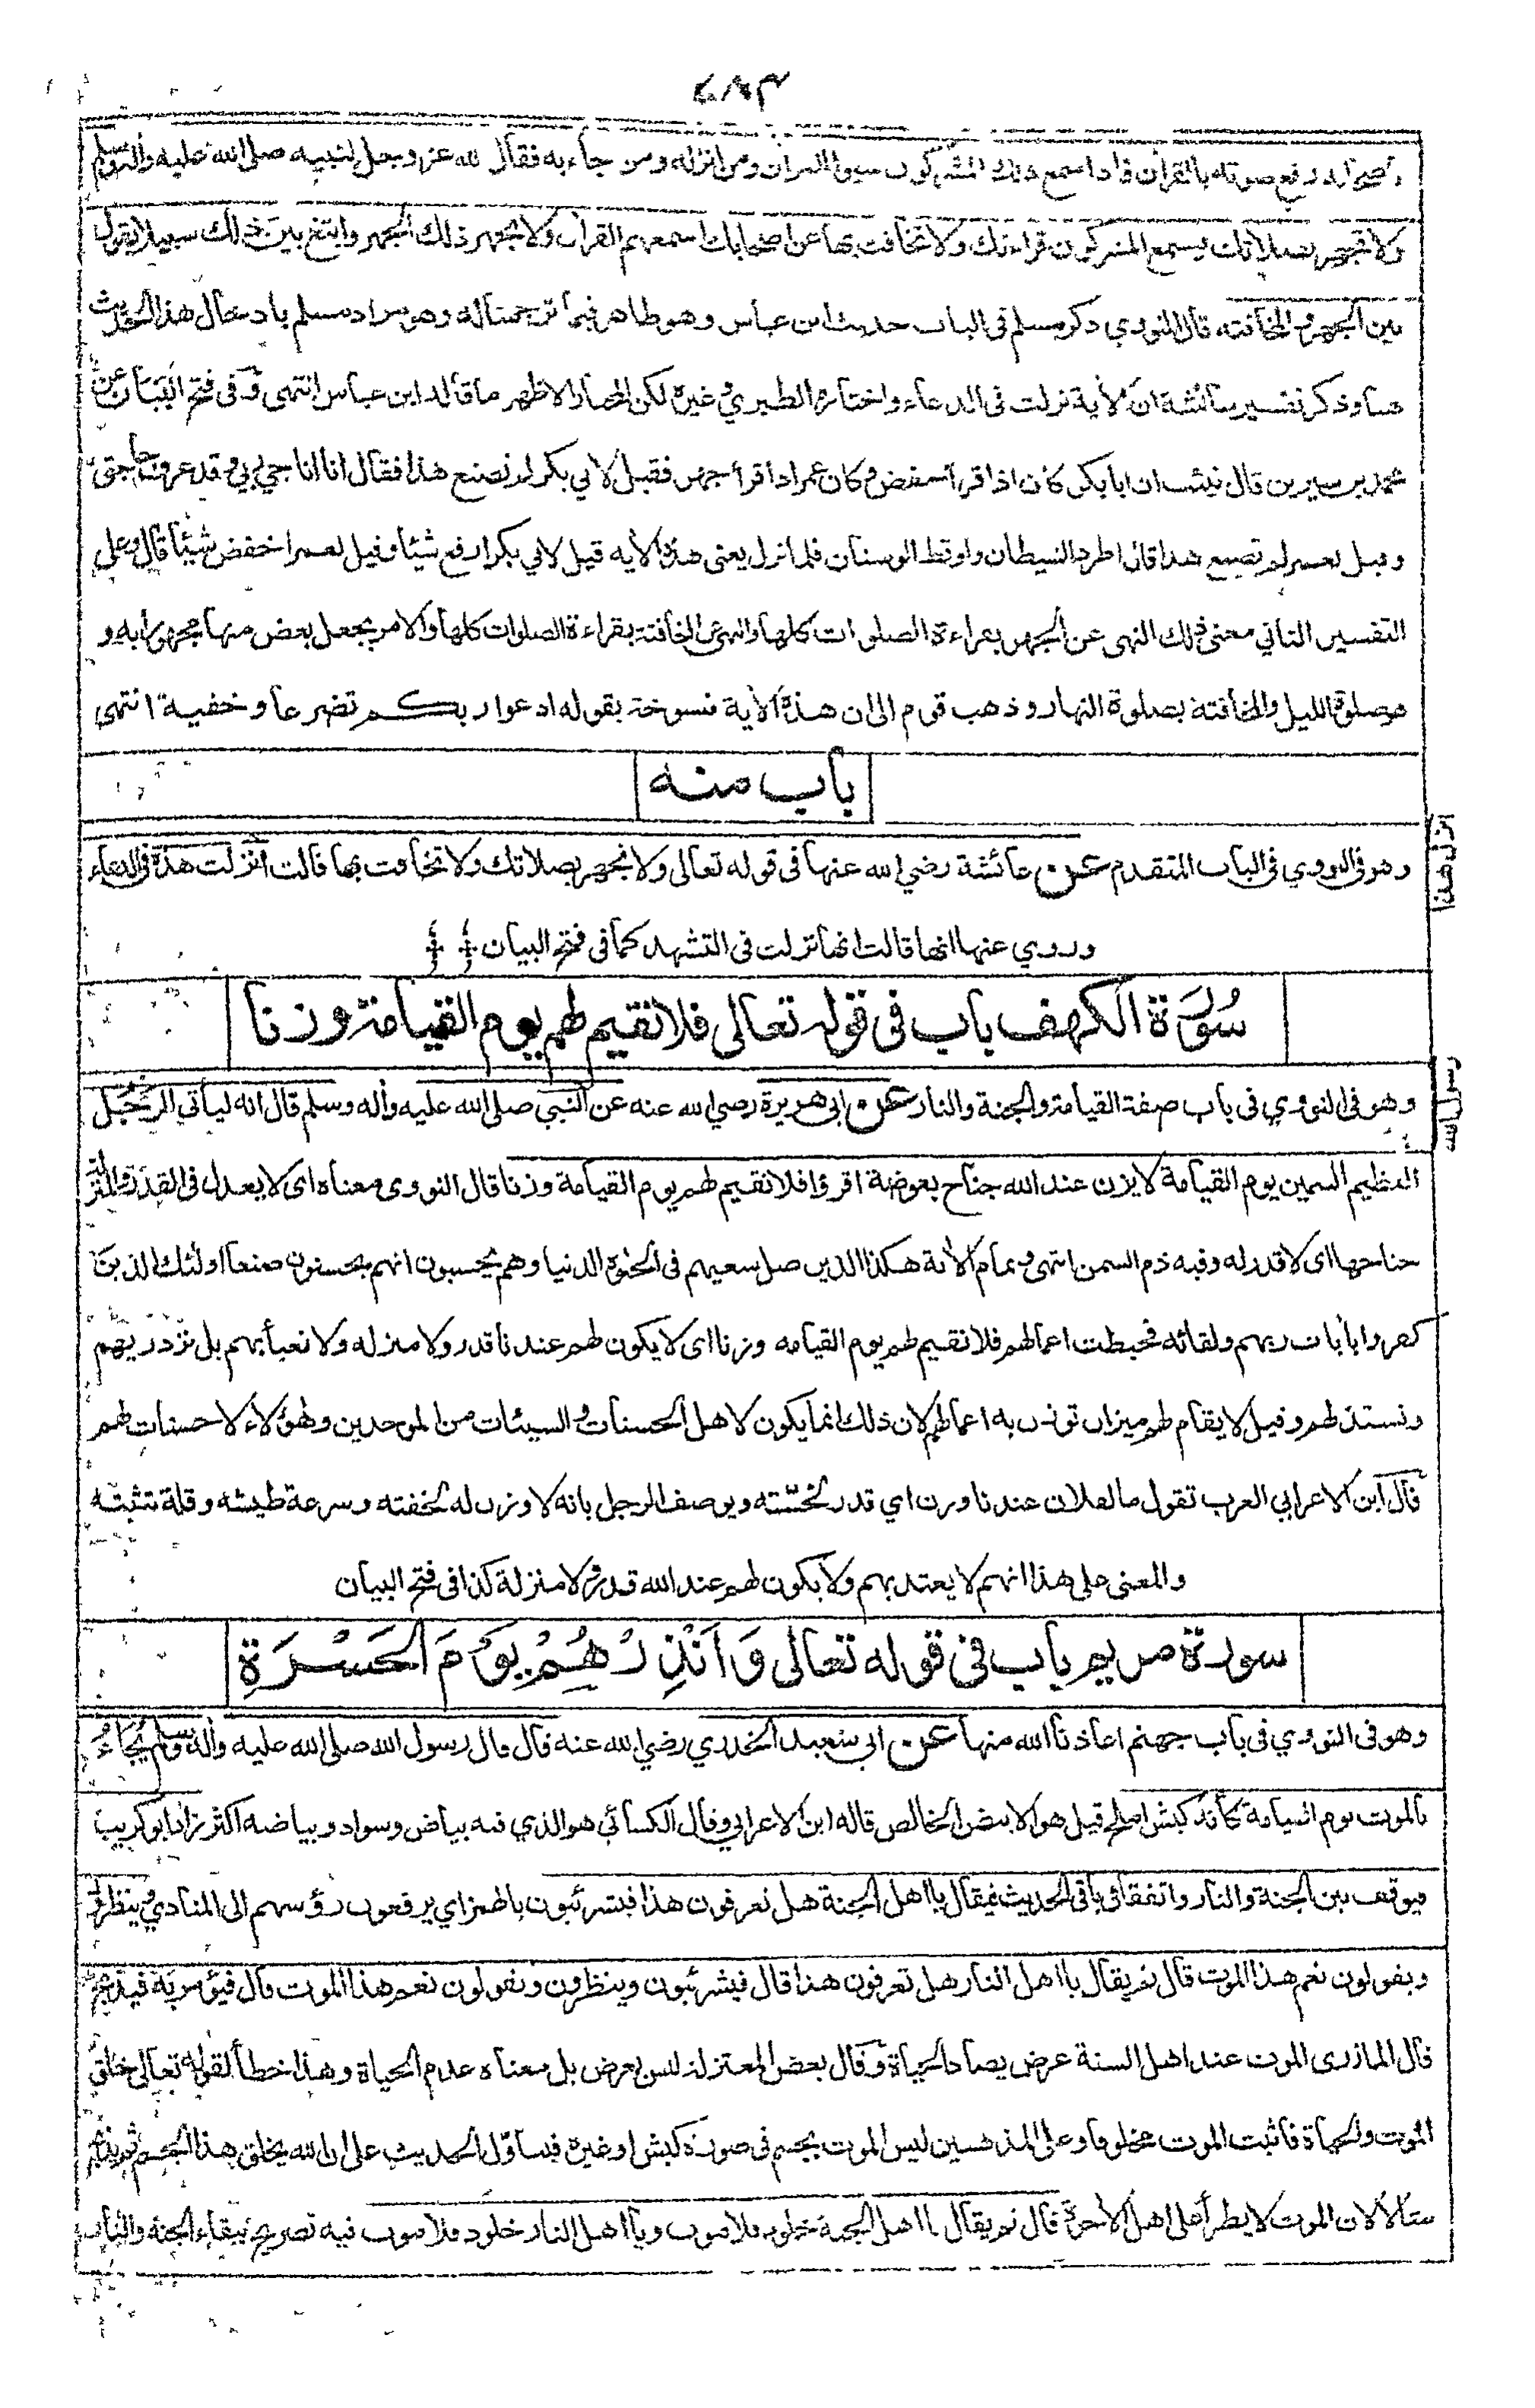 باصحابه رفع صوته بالقرأن فاذا سمع ذلك المشركون سبوا القرأن ومن انزله ومن جاء به فقال الله عز وجل لنبيه صلى الله عليه واله وسلم
ولا تجهر بصلاتك فيسمع المشركون قراءتك ولا تخافت بها عن اصحابك اسمعهم القرأن ولا تجهر ذلك الجهر وابتغ بين ذلك سبيلا يقول
بين الجهر والمخافتة قال النووي ذكر مسلم في الباب حديث ابن عباس وهو ظاهر فيما ترجمنا له وهو مراد مسلم بادخال هذا الحديث
هنا وذكر تفسير عائشة ان الأية نزلت في الدعاء واختاره الطبري وغيره لكن المختار الاظهر ما قاله ابن عباس انتهى وفي فتح البيان عن
محمد بن سيرين قال نبئت ان ابا بكر كان اذا قرأ خفض وكان عمر اذا قرأ جهر فقيل لابي بكر لم تصنع هذا فقال انا اناجي ربي وقد عرف حاجتي
وقيل لعمر لم تصنع هذا قال اطرد الشيطان واوقظ الوسنان فلما نزل يعني هذه الأية قيل لابي بكر ارفع شيئا وقيل لعمر اخفض شيئا قال وعلى
التفسير الثاني معنى ذلك النهي عن الجهر بقراءة الصلوات كلها والنهي عن المخافتة بقراءة الصلوات كلها والامر بجعل بعض منها مجهورا به و
هو صلوة الليل والمخافتة بصلوة النهار وذهب قوم الى ان هذه الأية منسوخة بقوله ادعوا ربكم تضرعا وخفية انتهى
باب منه
وهو في النووي في الباب المتقدم عن عائشة رضي الله عنها في قوله تعالى ولا تجهر بصلاتك ولا تخافت بها قالت انزلت هذه في الدعاء
وروي عنها انها قالت انها نزلت في التشهد كما في فتح البيان
سورة الكهف باب في قوله تعالى فلا نقيم لهم يوم القيامة وزنا
وهو في النووي في باب صفة القيامة والجنة والنار عن ابي هريرة رضي الله عنه عن النبي صلى الله عليه وأله وسلم قال انه ليأتي الرجل
العظيم السمين يوم القيامة لا يزن عند الله جناح بعوضة اقرؤا فلا نقيم لهم يوم القيامة وزنا قال النووي ومعناه اى لا يعدل في القدر والمنزلة
جناحها اى لا قدر له وفيه ذم السمن انتهى وتمام الأية هكذا الذين ضل سعيهم في الحيوة الدنيا وهم يحسبون انهم يحسنون صنعا اولئك الذين
كفروا بأيات ربهم ولقائه فحبطت اعمالهم فلا نقيم لهم يوم القيامه وزنا اى لا يكون لهم عندنا قدر ولا منزله ولا نعبأ بهم بل نزدريهم
ونستذلهم وقيل لا يقام لهم ميزان توزن به اعمالهم لان ذلك انما يكون لاهل الحسنات والسيئات من الموحدين وهؤلاء لا حسنات لهم
قال ابن الاعرابي العرب تقول ما لفلان عندنا وزن اي قدر لخسته ويوصف الرجل بانه لا وزن له لخفته وسرعة طيشه وقلة تثبته
والمعنى على هذا انهم لا يعتد بهم ولا يكون لهم عند الله قدر ولا منزلة كذا في فتح البيان
سورة مريم باب في قوله تعالى وَاَنْذِرْهُمْ يَوْمَ الْحَسْرَةِ
وهو في النووي في باب جهنم اعاذنا الله منها عن ابي سعيد الخدري رضي الله عنه قال قال رسول الله صلى الله عليه واله وسلم يُجَاءُ
بالموت يوم القيامة كأنه كبش املح قيل هو الابيض الخالص قاله ابن الاعرابي وقال الكسائي هو الذي فيه بياض وسواد وبياضه اكثر زاد ابو كريب
فيوقف بين الجنة والنار واتفقا في باقي الحديث فيقال يا اهل الجنة هل تعرفون هذا فيشرئبون بالهمز اي يرفعون رؤسهم الى المنادي وينظرون
ويقولون نعم هذا الموت قال ثم يقال يا اهل النار هل تعرفون هذا قال فيشرئبون وينظرون ويقولون نعم هذا الموت قال فيؤمر به فيذبح
قال المازري الموت عند اهل السنة عرض يضاد الحياة وقال بعض المعتزلة ليس بعرض بل معناه عدم الحياة وهذا خطأ لقوله تعالى خلق
الموت والحياة فاثبت الموت مخلوقا وعلى المذهبين ليس الموت بجسم في صورة كبش او غيره فيتأول الحديث على ان الله يخلق هذا الجسم ثم يذبح
مثالا لان الموت لا يطرأ على اهل الأخرة قال ثم يقال يا اهل الجنة خلود فلا موت ويا اهل النار خلود فلا موت فيه تصريح ببقاء الجنة والنار
انزل هذا
رسول الله